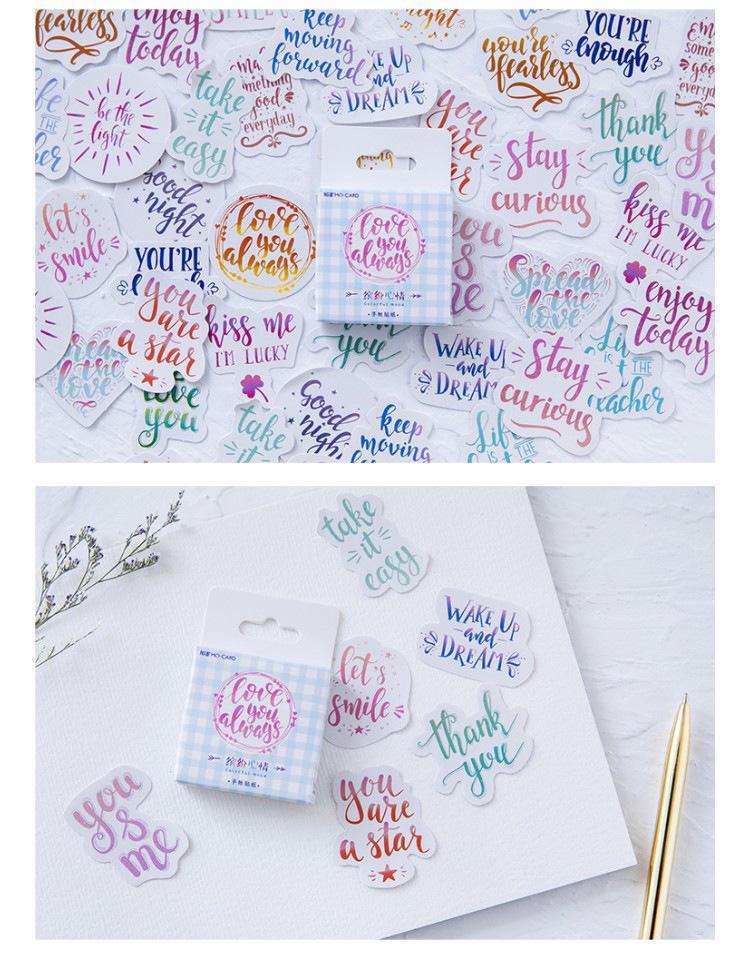 fearless
enjoy
today
keep
moving
forward
WAKE UP
and
DREAM
you're
fearless
YOU'RE
enough
be the
light
take
it
easy
something
good
everyday
you
are
a star
stay
curious
thank
you
kiss me
I'M LUCKY
let's
smile
good
night
love
you
always
MO·CARD
love
you
always
缤纷心情
Colorful mood
·手帐贴纸·
Spread
the
love
enjoy
today
YOU'RE
you
are
a star
kiss me
I'M LUCKY
you
WAKE UP
and
DREAM
stay
curious
THE
teacher
the
love
love
you
take
it
Good
night
keep
moving
Life
IS THE
take
it
easy
WAKE UP
and
DREAM
MO·CARD
love
you
always
缤纷心情
Colorful mood
·手帐贴纸·
let's
smile
thank
you
you
are
a star
you
&
me